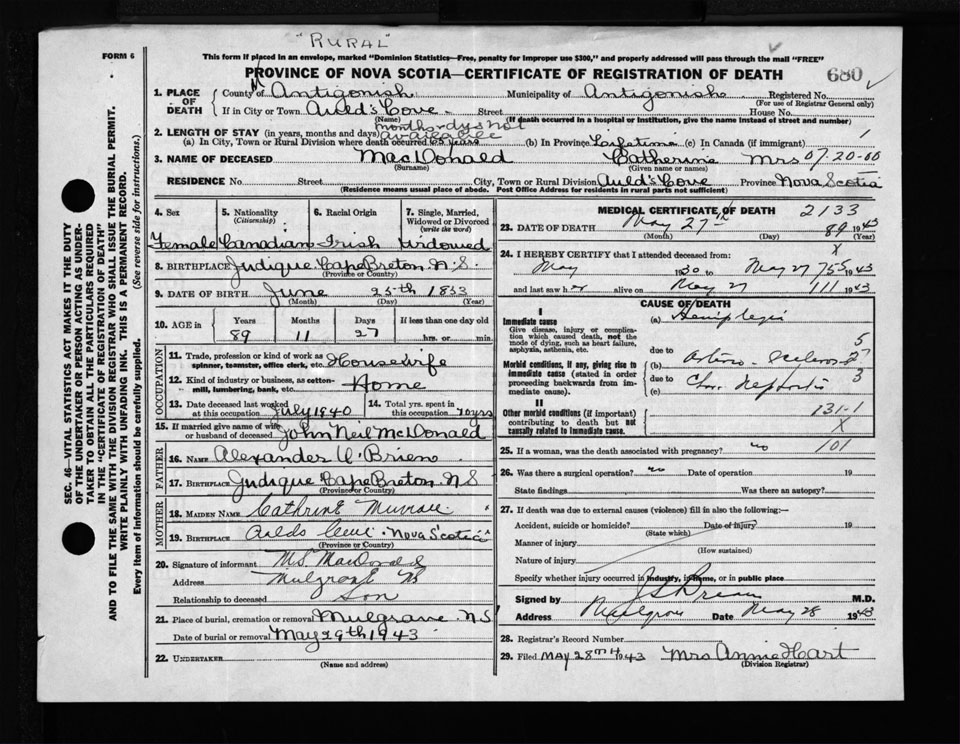 "RURAL"
FORM 6
This form if placed in an envelope, marked "Dominion Statistics—Free, penalty for improper use $300," and properly addressed will pass through the mail "FREE"
PROVINCE OF NOVA SCOTIA—CERTIFICATE OF REGISTRATION OF DEATH
680
1. PLACE OF DEATH
County of Antigonish Municipality of Antigonish Registered No.
(For use of Registrar General only)
If in City or Town Auld's Cove Street House No.
(Name) (If death occurred in a hospital or institution, give the name instead of street and number)
months & dys not available
2. LENGTH OF STAY (in years, months and days)
(a) In City, Town or Rural Division where death occurred 65 years (b) In Province Lifetime (c) In Canada (if immigrant)
1
3. NAME OF DECEASED MacDonald Catherine Mrs 07-20-00
(Surname) (Given name or names)
RESIDENCE No Street City, Town or Rural Division Auld's Cove Province Nova Scotia
(Residence means usual place of abode. Post Office Address for residents in rural parts not sufficient)
4. Sex
Female
5. Nationality (Citizenship)
Canadian
6. Racial Origin
Irish
7. Single, Married, Widowed or Divorced (write the word)
Widowed
8. BIRTHPLACE Judique Cape Breton N.S.
(Province or Country)
9. DATE OF BIRTH June 25th 1853
(Month) (Day) (Year)
10. AGE in Years Months Days If less than one day old
89 11 27 hrs. or min.
OCCUPATION
11. Trade, profession or kind of work as spinner, teamster, office clerk, etc. Housewife
12. Kind of industry or business, as cotton-mill, lumbering, bank, etc. Home
13. Date deceased last worked at this occupation July 1940
14. Total yrs. spent in this occupation 70 yrs
15. If married give name of wife or husband of deceased John Neil McDonald
FATHER
16. NAME Alexander O'Brien
17. BIRTHPLACE Judique Cape Breton N.S
(Province or Country)
MOTHER
18. MAIDEN NAME Cathrine
19. BIRTHPLACE Aulds Nova Scotia
(Province or Country)
20. Signature of informant M.S. MacDonald
Address Mulgrave NS
Relationship to deceased Son
21. Place of burial, cremation or removal Mulgrave. N.S
Date of burial or removal May 29th 1943
22. UNDERTAKER
(Name and address)
MEDICAL CERTIFICATE OF DEATH 2133
23. DATE OF DEATH May 27th 89 1943
(Month) (Day) (Year)
24. I HEREBY CERTIFY that I attended deceased from: X
May 1930 to May 27 75-5 1943
and last saw her alive on May 27 111 1943
CAUSE OF DEATH
I
Immediate cause
Give disease, injury or complication which caused death, not the mode of dying, such as heart failure, asphyxia, asthenia, etc.
(a) Hemiplegia
due to
5
Morbid conditions, if any, giving rise to immediate cause (stated in order proceeding backwards from immediate cause).
(b) Arterio
due to 3
(c) Chr. Nephritis
II
Other morbid conditions (if important) contributing to death but not causally related to immediate cause.
131-1
X
25. If a woman, was the death associated with pregnancy? no 101
26. Was there a surgical operation? no Date of operation 19
State findings Was there an autopsy?
27. If death was due to external causes (violence) fill in also the following:—
Accident, suicide or homicide? Date of injury 19
(State which)
Manner of injury
(How sustained)
Nature of injury
Specify whether injury occurred in industry, in home, or in public place
Signed by M.D.
Address Mulgrave Date May 28 1943
28. Registrar's Record Number
29. Filed MAY 28TH 1943 Mrs Annie Hart
(Division Registrar)
SEC. 46—VITAL STATISTICS ACT MAKES IT THE DUTY
OF THE UNDERTAKER OR PERSON ACTING AS UNDER-
TAKER TO OBTAIN ALL THE PARTICULARS REQUIRED
IN THE "CERTIFICATE OF REGISTRATION OF DEATH"
AND TO FILE THE SAME WITH THE DIVISION REGISTRAR WHO SHALL ISSUE THE BURIAL PERMIT.
WRITE PLAINLY WITH UNFADING INK. THIS IS A PERMANENT RECORD.
Every item of information should be carefully supplied. (See reverse side for instructions.)